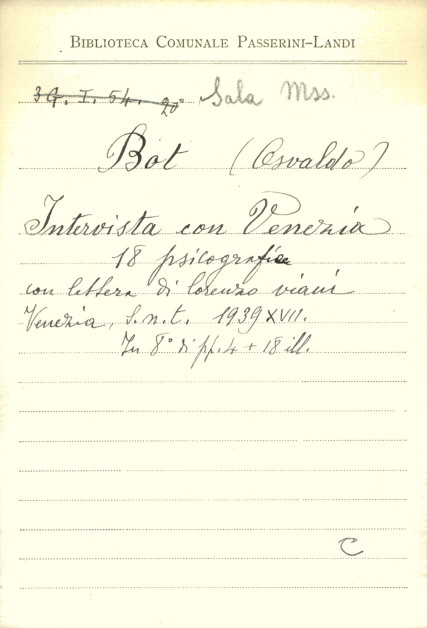 BIBLIOTECA COMUNALE PASSERINI-LANDI
3G. I. 54. 20° Sala Mss.
Bot (Osvaldo)
Intervista con Venezia
18 psicografie
con lettera di lorenzo viani
Venezia, S. n. t. 1939 XVII.
In 8° di pp. 4 + 18 ill.
C